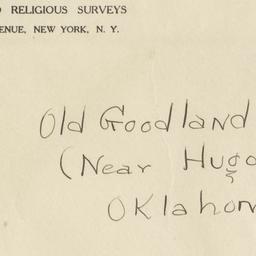 RELIGIOUS SURVEYS
ENUE, NEW YORK, N. Y.
Old Goodland
(Near Hugo
Oklahom